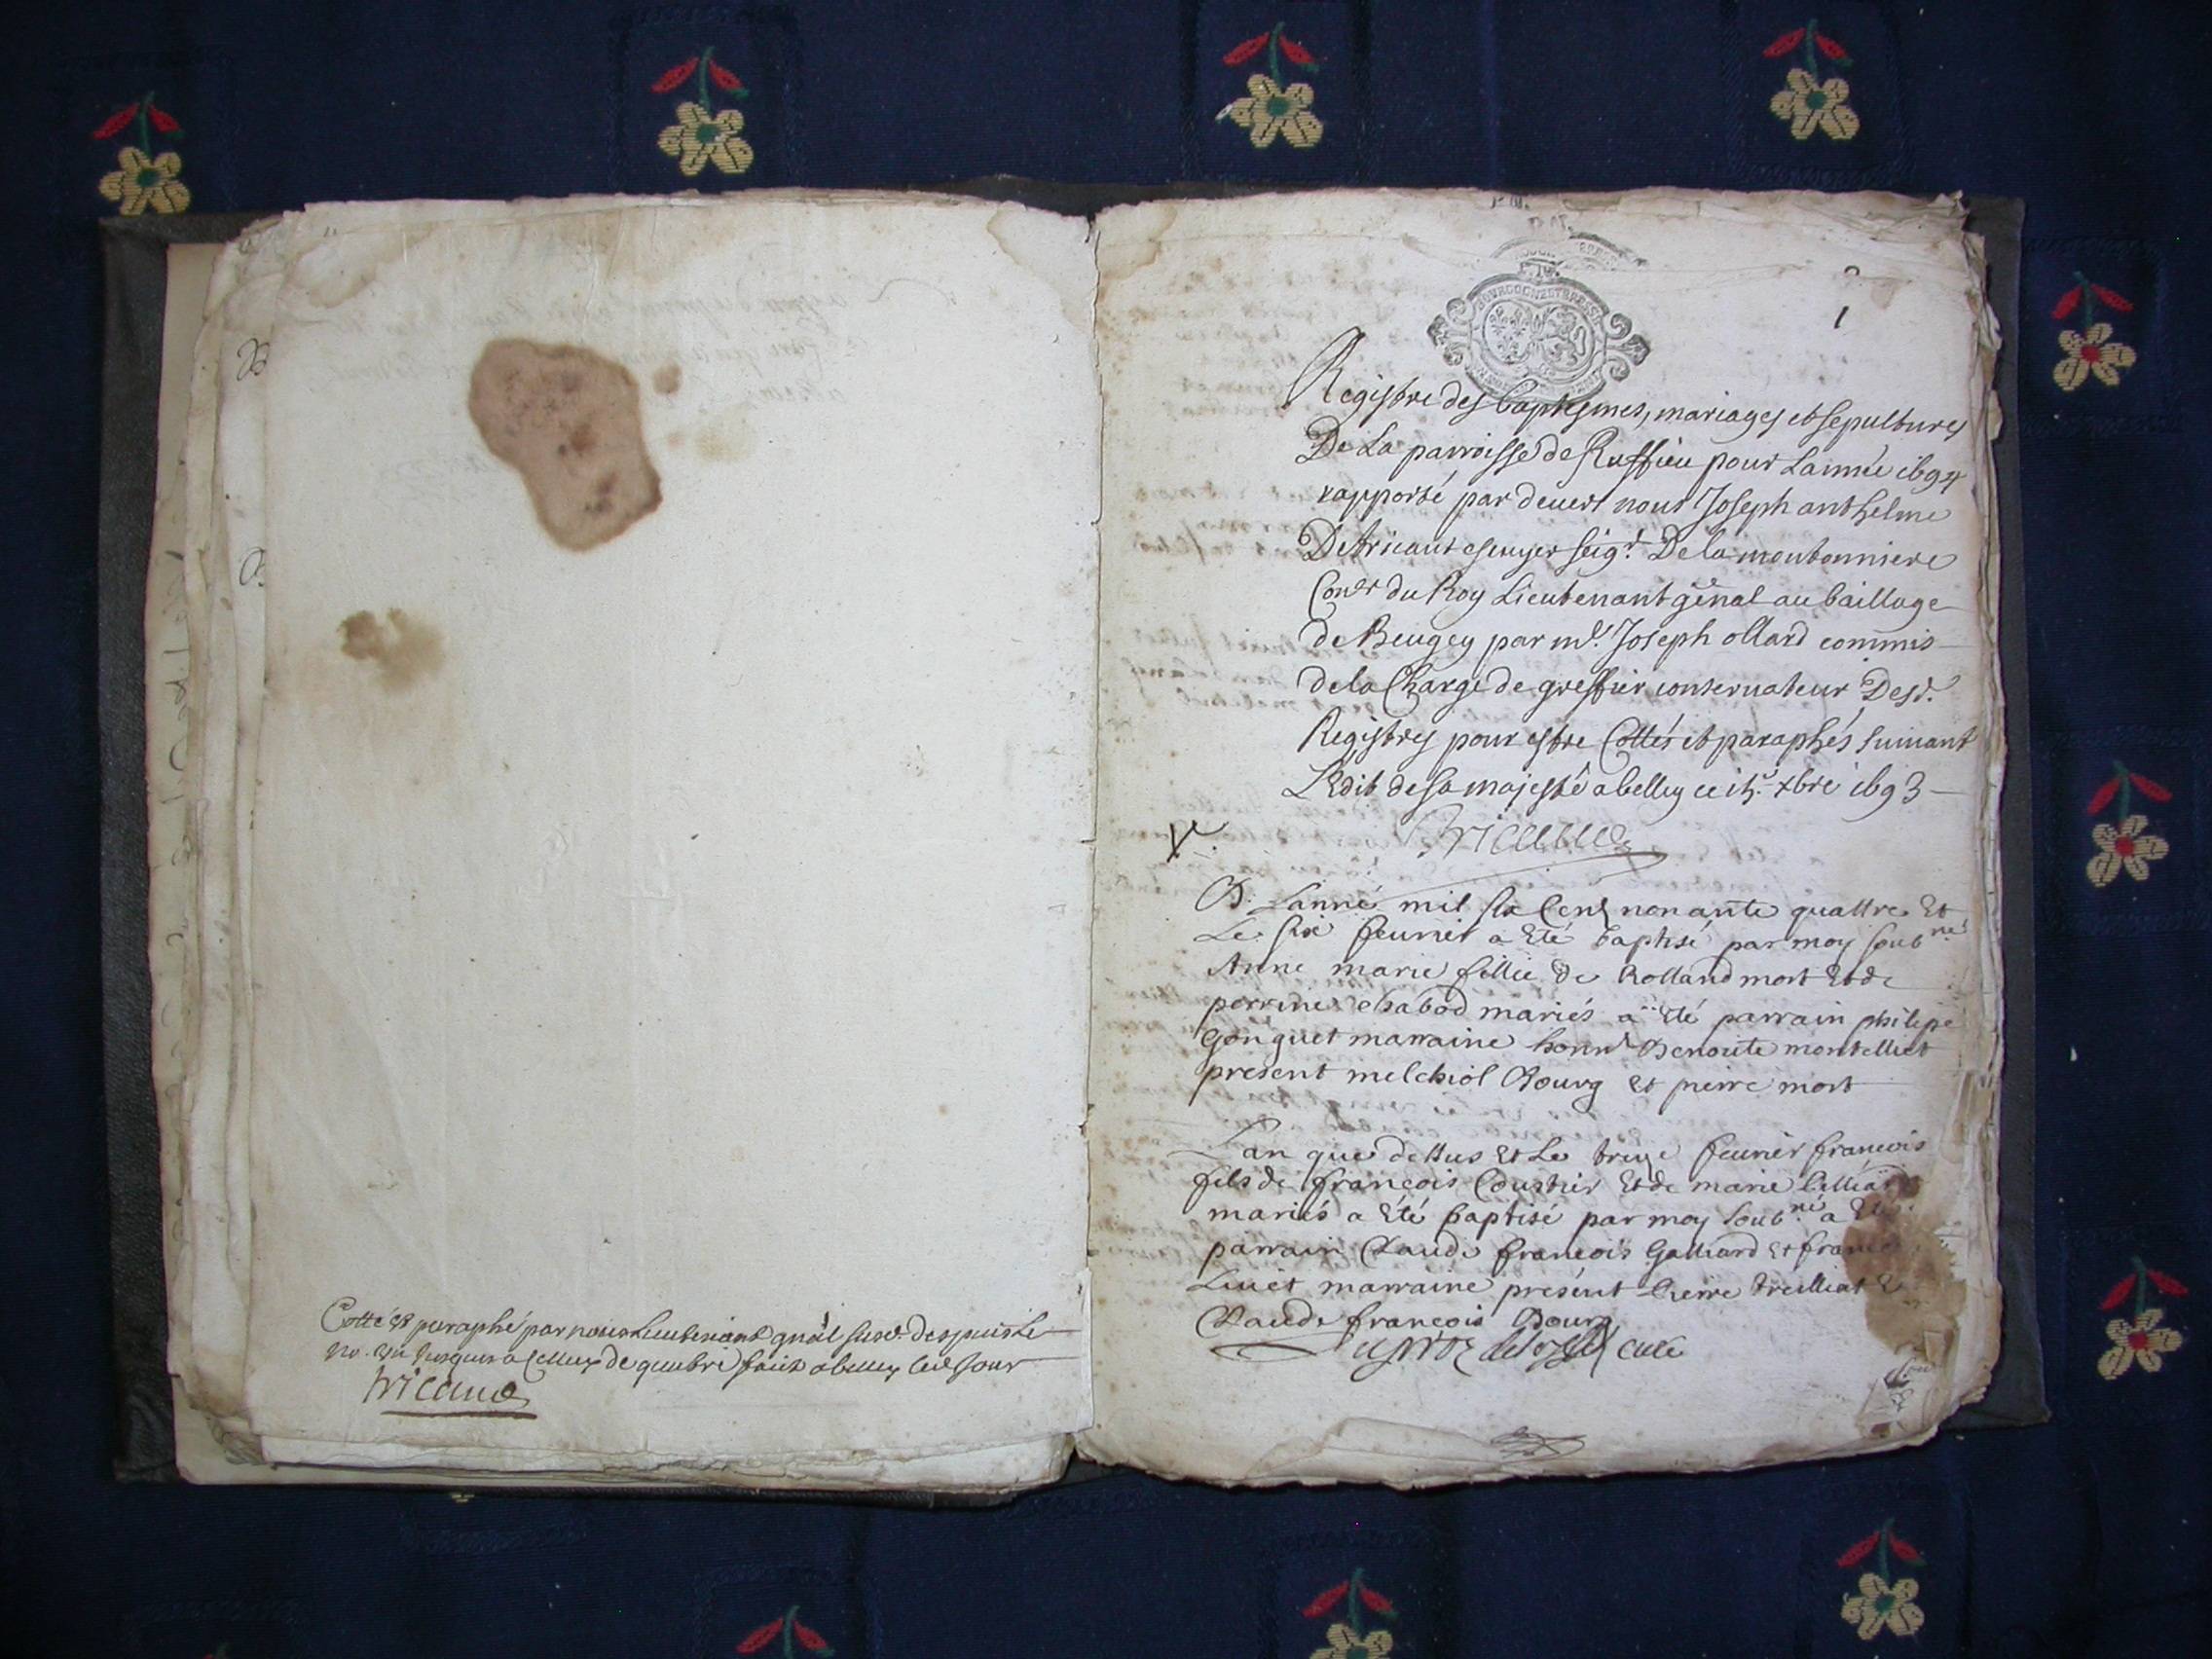 Cotté et paraphé par nous Lieutenant gnâl susd. despuis le
no. un jusques a celluy de faict a belley led jour
Tricaud
BOURGOGNE ET BRESSE
1
Registre des baptesmes, mariages et sepultures
De La parroisse de Ruffieu pour Lannée 1694
rapporté par devers nous Joseph anthelme
De tricaut escuyer seigr. De la moutonniere
Coner du Roy Lieutenant gênal au baillage
de Beugey par me. Joseph ollard commis
de la Charge de greffier conservateur Desd.
Registres pour estre Cottés et paraphés suivant
L'Edit de sa majesté a belley ce xbre 1693
Tricaud
B. Lanné mil six Cent nonante quattre Et
Le six feuvrier a Eté baptisé par moy soubné
Anne marie fillie de Rolland mort Et de
perrine chabod mariés a Eté parrain philipe
Gonguet marraine honne Benoite montelliet
present melchiol Bourg et pierre mort
Lan que dessus Et Le treize feuvrier françois
fils de françois Coustier Et de marie
mariés a Eté baptisé par moy soubné a Eté
parrain Claude françois Galliard Et
Livet marraine présent pierre treilliat Et
Claude françois Bourg
curé